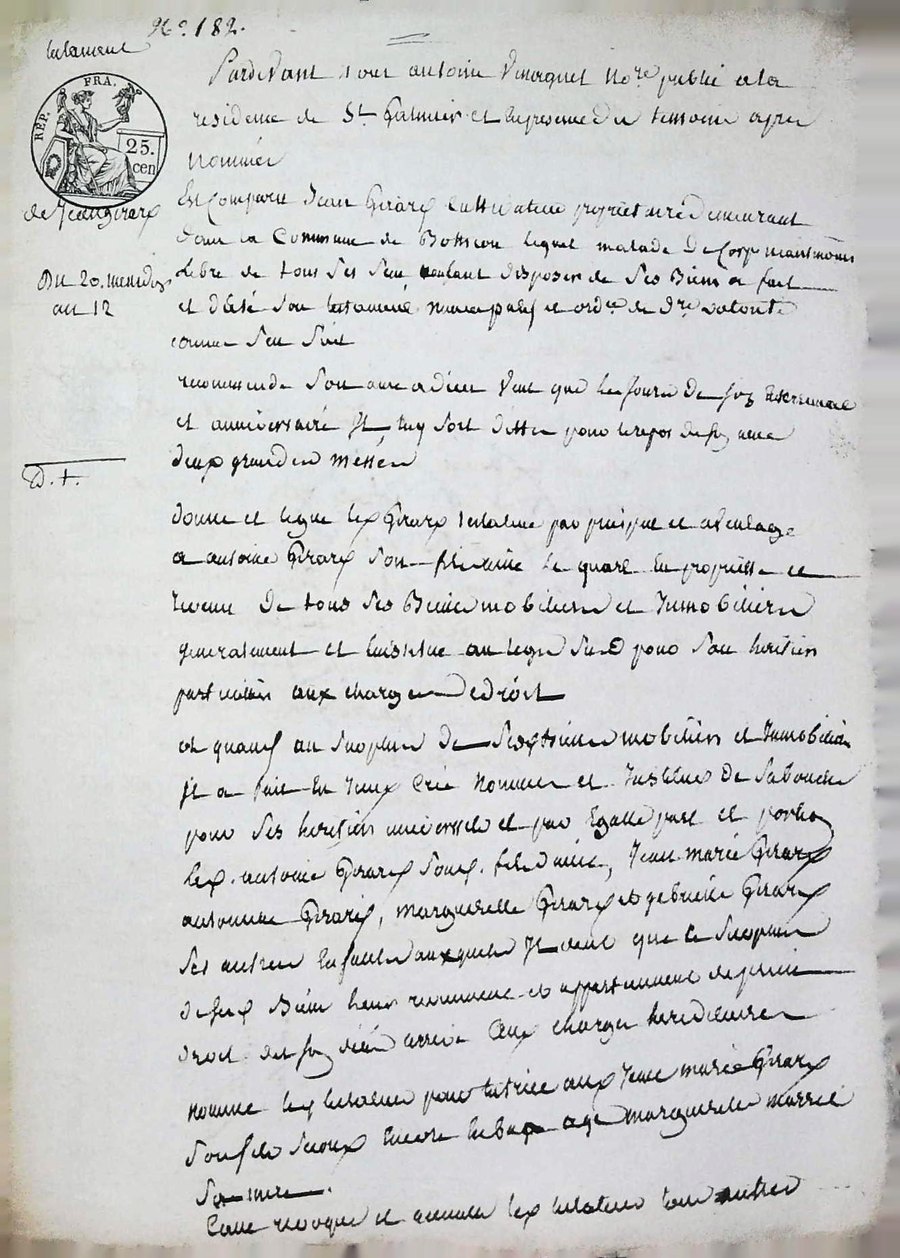 N.º 182.
testament
RÉP. FRA.
25.
cen
de Jean girard
Du 20. messidor
an 12
D. f.
Pardevant Nous antoine nore public a la
residence de St. Galmier et en presence des temoins apres
nommés
Est Comparu Jean Girard Cultivateur proprietaire demeurant
dans la Commune de Boisson lequel malade De Corps neantmoins
Libre de tous ses sens voulant disposer de ses Biens a fait
et dicté son testament et ordre de dre volonté
comme sen suit
recommande son ame a dieu Veut que les jours de son
et anniversaire Il luy soit dittes pour le repos de son ame
deux grandes messes
donne et legue led Girard testateur par preciput et avantage
a antoine Girard son fils le quart en propriété et
revenu De tous ses Biens mobiliers et Immobiliers
generalement et linstitue au legs sud pour son heritier
particulier aux charges De droit
et quand au surplus De ses biens mobiliers et Immobiliers
Il a fait Créé Nommé et Institué De sa bouche
pour ses heritiers universels et par Egalle part et portion
led. antoine Girard fils, Jean marie Girard
antoinne Girard, marguerette Girard et gebrielle Girard
ses autres Enfants auxquels Il veut que le surplus
de ses Biens leurs reviennent et appartiennent de plein
droit des son décè arrivé aux charges hereditaires
nomme led testateur pour tutrice aux Jean marie Girard
son fils Encore en bas age marguerette
sa mere.
Casse revoque et annulle led testateur tous autres